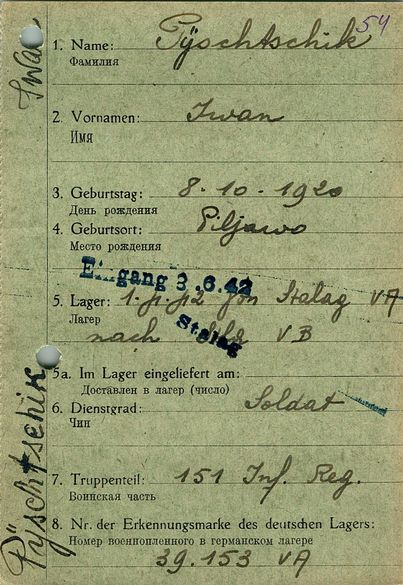 54
1. Name: Pÿschtschik
Фамилия
2. Vornamen: Iwan
Имя
3. Geburtstag: 8.10.1920
День рождения
4. Geburtsort: Piljawo
Место рождения
Eingang 3.6.42
5. Lager: Stalag VA
Лагер
nach VB
Stalag
5a. Im Lager eingeliefert am:
Доставлен в лагер (число)
6. Dienstgrad: Soldat
Чин
7. Truppenteil: 151 Inf. Reg.
Воинская часть
8. Nr. der Erkennungsmarke des deutschen Lagers:
Номер военнопленного в германском лагере
39.153 VA
Pÿschtschik
Iwan